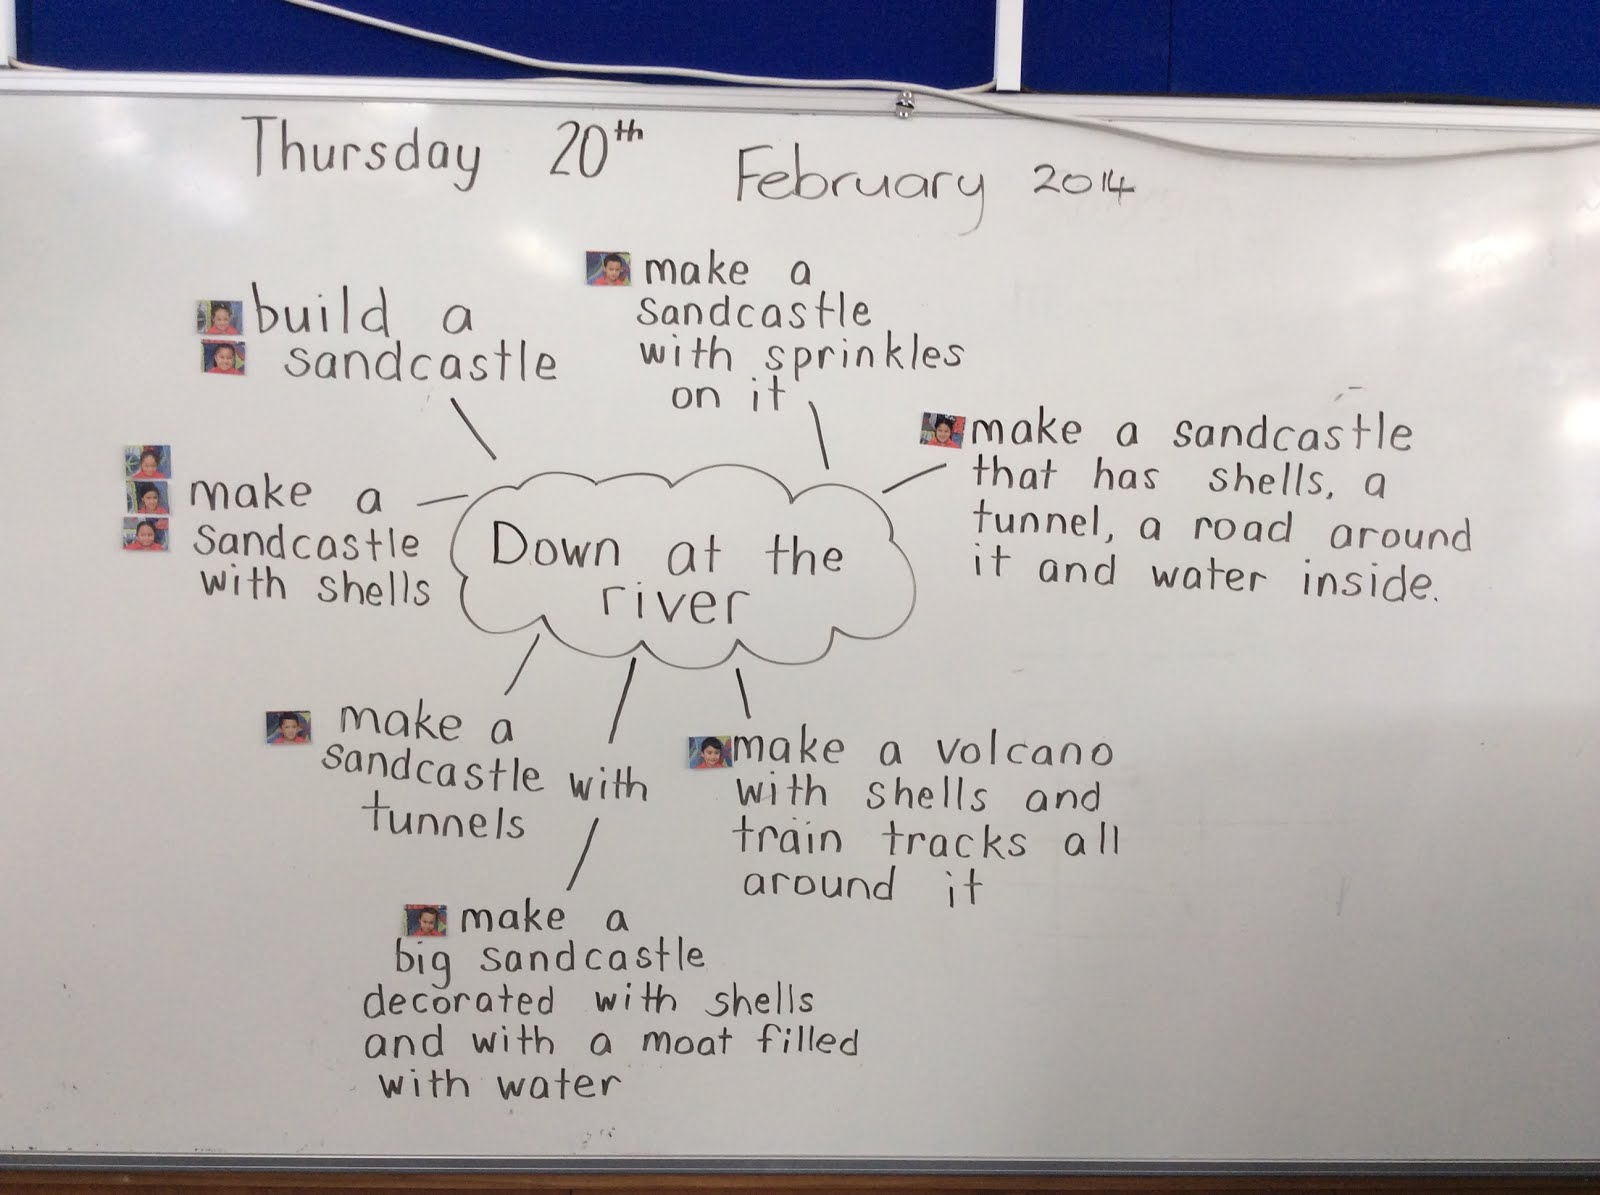 Thursday 20th February 2014
build a
sandcastle
make a
sandcastle
with sprinkles
on it
make a sandcastle
that has shells, a
tunnel, a road around
it and water inside.
make a
sandcastle
with shells
Down at the
river
make a
sandcastle with
tunnels
make a volcano
with shells and
train tracks all
around it
make a
big sandcastle
decorated with shells
and with a moat filled
with water